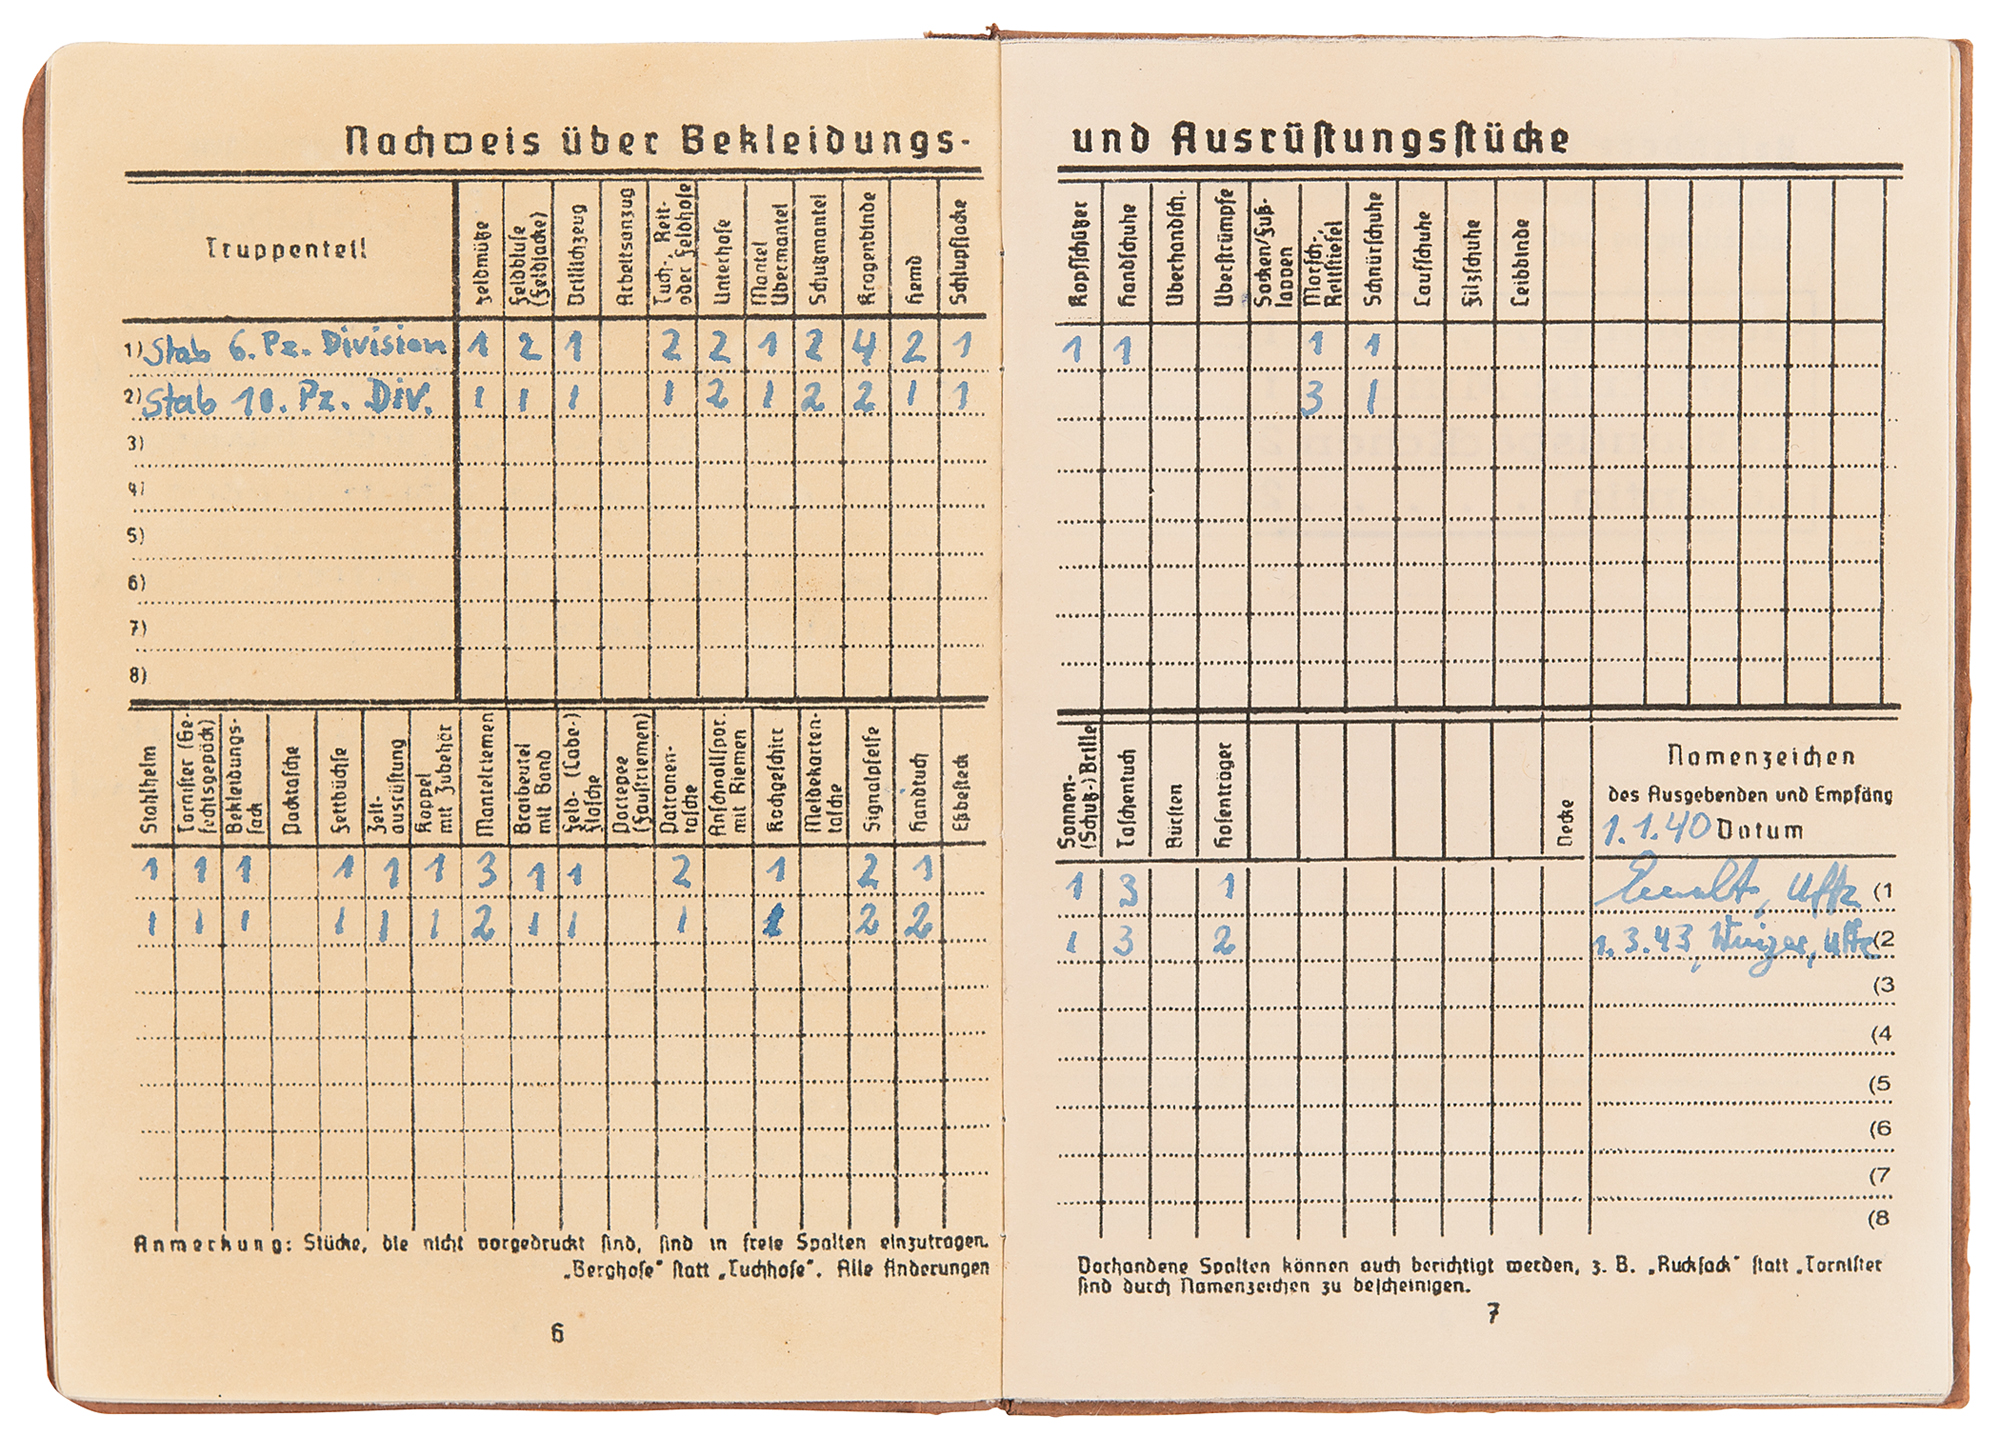 Nachweis über Bekleidungs-
Truppenteil
Feldmütze
Feldbluse (Feldjacke)
Drillichzeug
Arbeitsanzug
Tuch-, Reit- oder Feldhose
Unterhose
Mantel Übermantel
Schutzmantel
Kragenbinde
Hemd
Schlupfjacke
1) Stab 6. Pz. Division 1 2 1 2 2 1 2 4 2 1
2) Stab 10. Pz. Div. 1 1 1 1 2 1 2 2 1 1
3)
4)
5)
6)
7)
8)
Stahlhelm
Tornister (Ge-
fechtsgepäck)
Bekleidungs-
sack
Packtasche
Fettbüchse
Zelt-
ausrüstung
Koppel
mit Zubehör
Mantelriemen
Brotbeutel
mit Band
Feld- (Labe-)
flasche
Portepee
(Faustriemen)
Patronen-
tasche
Anschnallspor.
mit Riemen
Kochgeschirr
Meldekarten-
tasche
Signalpfeife
Handtuch
Eßbesteck
1 1 1 1 1 1 3 1 1 2 1 2 1
1 1 1 1 1 1 2 1 1 1 1 2 2
Anmerkung: Stücke, die nicht vorgedruckt sind, sind in freie Spalten einzutragen.
„Berghose" statt „Tuchhose". Alle Änderungen
6
und Ausrüstungsstücke
Kopfschützer
Handschuhe
Überhandsch.
Überstrümpfe
Socken/Fuß-
lappen
Marsch-,
Reitstiefel
Schnürschuhe
Laufschuhe
Filzschuhe
Leibbinde
1 1 1 1
3 1
Sonnen-
(Schutz-) Brille
Taschentuch
Bürsten
Hosenträger
Decke
Namenzeichen
des Ausgebenden und Empfäng
1.1.40 Datum
1 3 1 Uffz (1
1 3 2 1.3.43, Uffz (2
(3
(4
(5
(6
(7
(8
Vorhandene Spalten können auch berichtigt werden, z. B. „Rucksack" statt „Tornister
sind durch Namenzeichen zu bescheinigen.
7